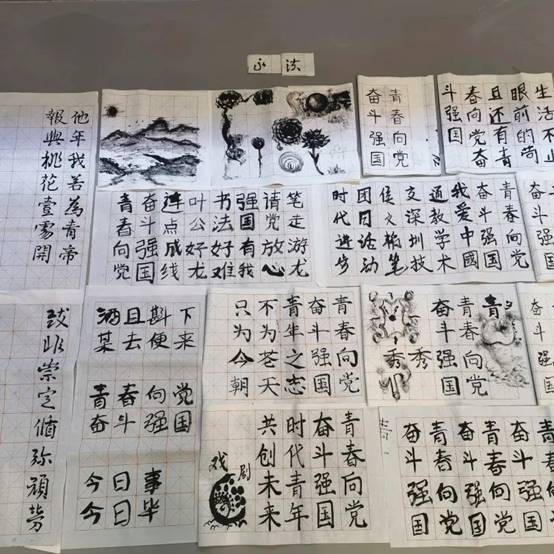 法
他年我若為青帝
報與桃花壹處開
青春向党
奋斗强国
生活不止
眼前的苟
且还有青
春向党奋
斗强国
笔走游龙
请党放心
强国有我
书法好难
叶公好龙
连点成线
奋斗强国
青春向党
青春向党
奋斗强国
我爱中國
通教学术
交深圳技
团日活动
时代进步
酒且斟下
某去便来
青春向党
奋斗强国
今日事
今日毕
青春向党
奋斗强国
青年之志
不为苍天
只为今朝
青春向党
奋斗强国
秀秀
青春向党
奋斗强国
时代青年
共创未来
戏剧
奋斗强国
青春向党
奋斗强国
青春向党
奋斗强国